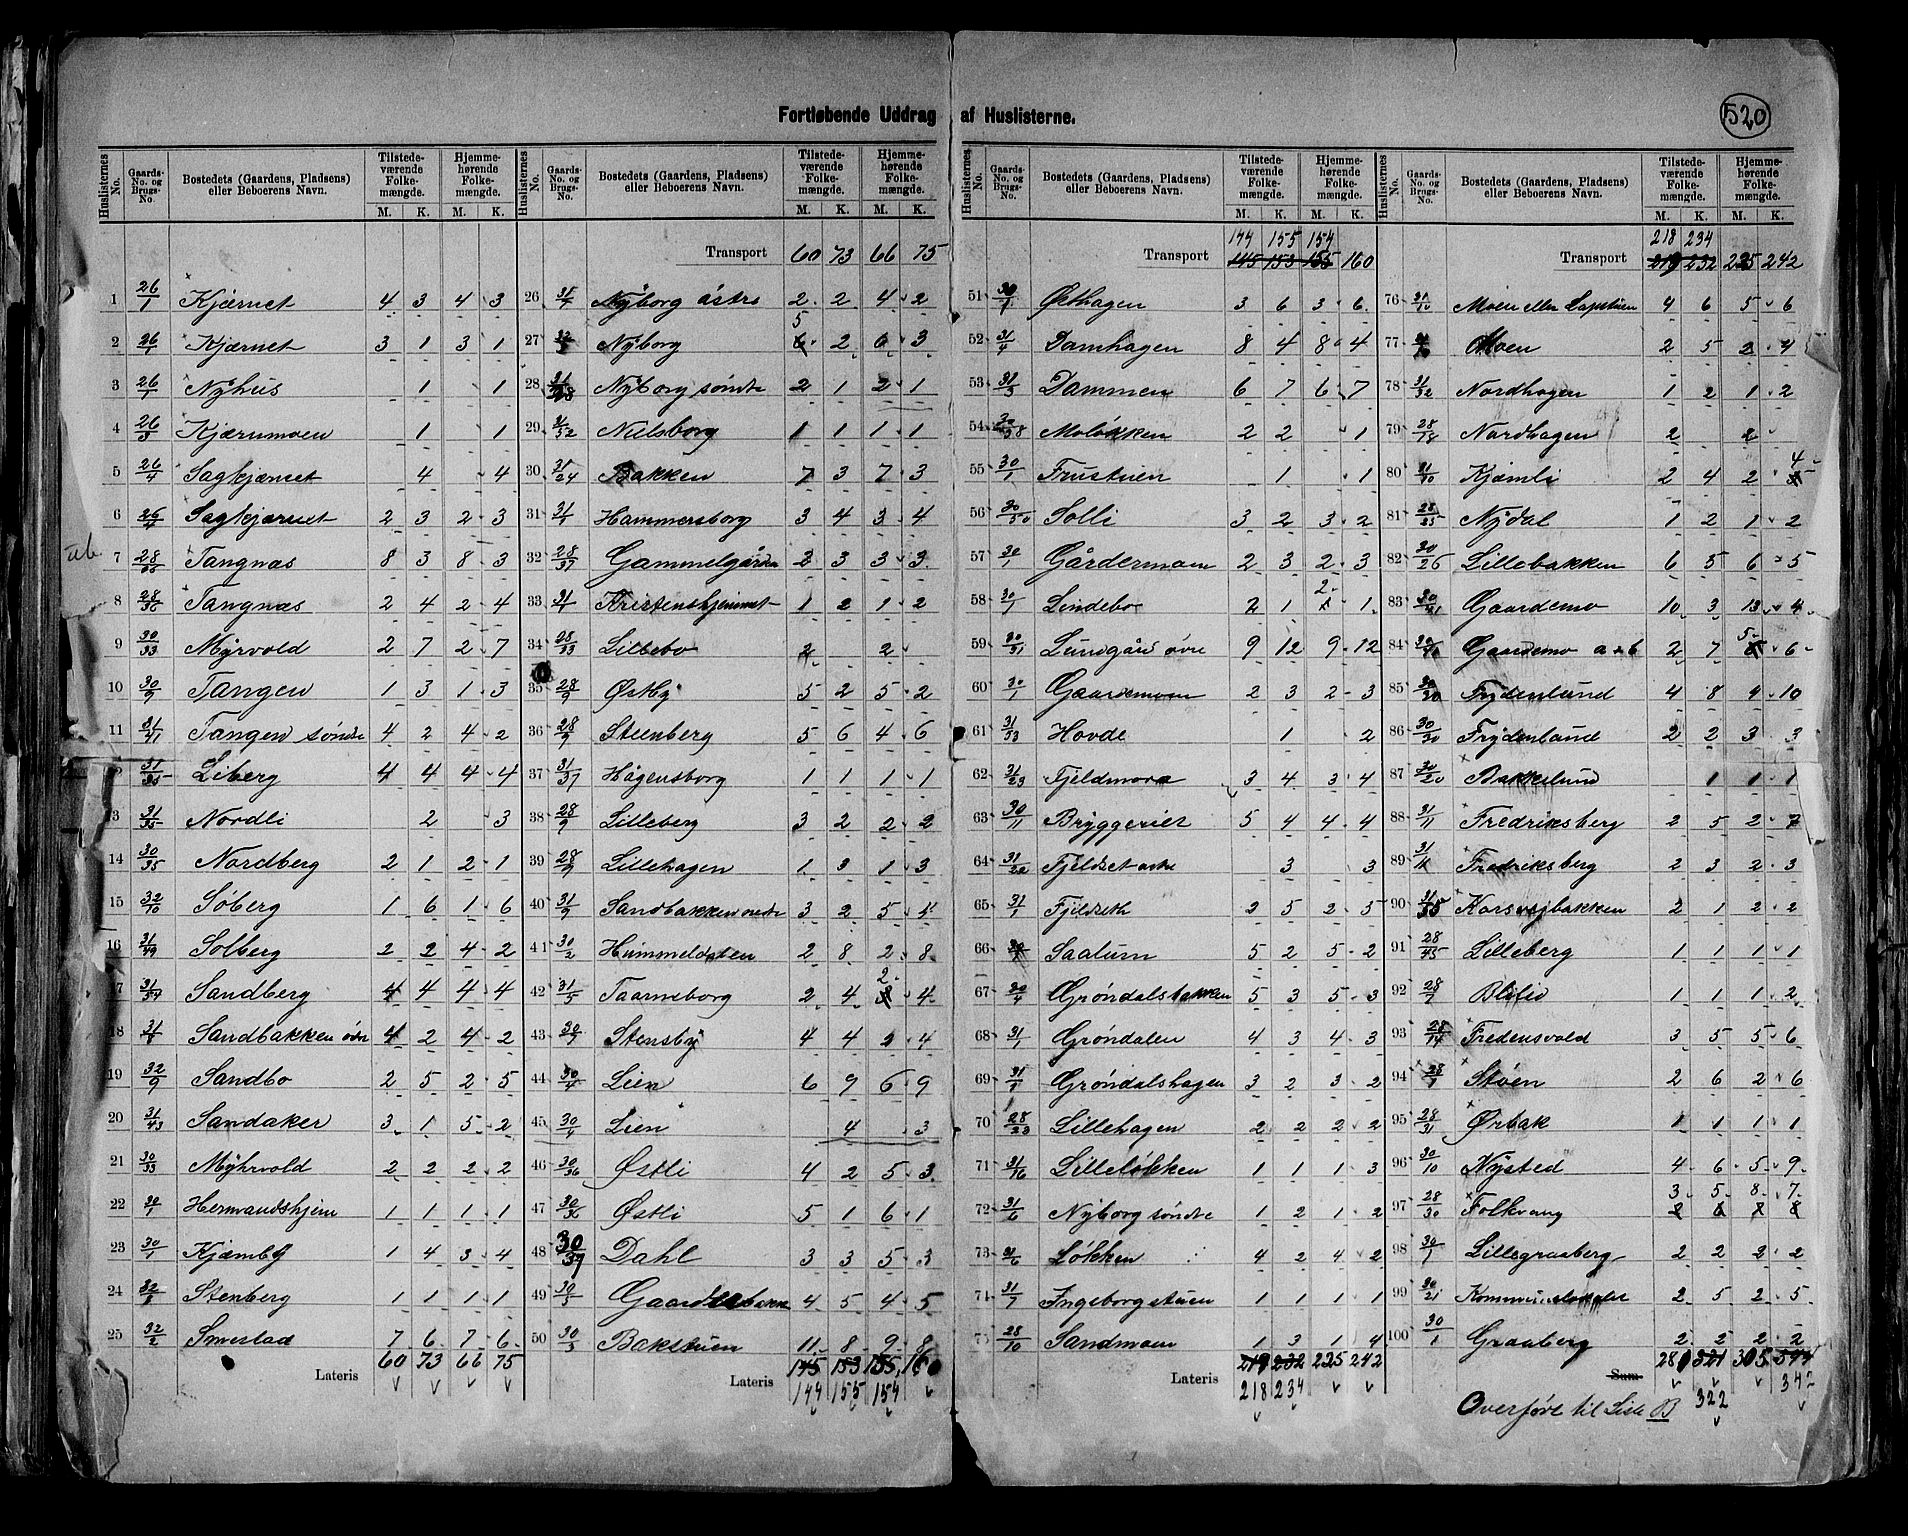 Fortløbende Uddrag af Huslisterne.
520
Huslisternes No. | Gaards-No. og Brugs-No. | Bostedets (Gaardens, Pladsens) eller Beboerens Navn. | Tilstedeværende Folkemængde. M. K. | Hjemmehørende Folkemængde. M. K.
1 26/1 Kjærnet 4 3 4 3
2 26/1 Kjærnet 3 1 3 1
3 26/1 Nyhus 1 1
4 26/3 Kjærnmoen 1 1
5 26/4 Sagkjærnet 4 4
6 26/4 Sagkjærnet 2 3 2 3
ub
7 Tangnæs 8 3 8 3
8 Tangnæs 2 4 2 4
9 30/33 Myrvold 2 7 2 7
10 30/9 Tangen 1 3 1 3
11 31/41 Tangen søndre 4 2 4 2
31/35 Liberg 4 4 4 4
3 31/35 Nordli 2 3
14 30/35 Nordberg 2 1 2 1
15 32/10 Søberg 1 6 1 6
16 31/49 Solberg 2 2 4 2
7 Sandberg 4 4 4 4
18 Sandbakken øvre 4 2 4 2
19 32/9 Sandbo 2 5 2 5
20 31/43 Sandaker 3 1 5 2
21 30/33 Myhrvold 2 2 2 2
22 30/1 Hermandshjem 1 1 1 1
23 30/1 Kjæmby 1 4 3 4
24 Stenberg 1 1 1 1
25 32/2 Smestad 7 6 7 6
Lateris 60 73 66 75
Transport 60 73 66 75
26 Nyborg østre 2 2 4 2
27 Nyborg 5 2 6 3
28 Nyborg søndre 2 1 2 1
29 31/52 Nilsborg 1 1 1 1
30 31/24 Bakken 7 3 7 3
31 31/1 Hammersborg 3 4 3 4
32 28/37 Gammelgården 3 3 3
33 31/1 Kristenshjemmet 1 2 1 2
34 28/33 Lillebo 2 2
35 28/9 Østby 5 2 5 2
36 28/9 Steenberg 5 6 4 6
37 31/37 Hågensborg 1 1 1 1
38 28/9 Lilleberg 3 2 2 2
39 28/9 Lillehagen 1 3 1 3
40 31/9 Sandbakken nedre 3 2 5
41 30/2 Hummeldalen 2 8 2 8
42 31/5 Taarneborg 2 4 2 4
43 30/7 Stensby 4 4 2 4
44 30/4 Lien 6 9 6 9
45 30/4 Lien 4 3
46 30/36 Østli 4 2 5 3
47 Østli 5 1 6 1
48 30/37 Dahl 3 3 5 3
49 30/3 Gaardsbakken 4 5 4 5
50 30/3 Bakstuen 11 8 9 8
Lateris 145 153 155 160
144 155 154
Transport 144 155 154
145 153 155 160
51 30/1 Østhagen 3 6 3 6
52 31/4 Damhagen 8 4 8 4
53 31/3 Dammen 6 7 6 7
54 Moløkken 2 2 1
55 30/1 Frustuen 1 1
56 30/50 Solli 3 2 3 2
57 30/1 Gårdermoen 2 3 2 3
58 30/1 Lindebo 2 1 2 1
59 30/31 Lundgård øvre 9 12 9 12
60 30/1 Gaardemoen 2 3 2 3
61 31/53 Hovde 1 2
62 31/23 Fjeldmora 3 4 3 4
63 30/11 Bryggeriet 5 4 4 4
64 31/22 Fjeldset østre 3 3
65 31/1 Fjeldseth 2 5 2 5
66 Saatum 5 2 5 2
67 30/4 Grøndalsbakken 5 3 5 3
68 31/1 Grøndalen 4 3 4 3
69 31/1 Grøndalshagen 3 2 3 2
70 28/23 Lillehagen 2 2 2 2
71 31/16 Lilleløkken 1 1 1 3
72 31/6 Nyborg søndre 1 2 1 2
73 31/6 Løkken 4 2 4 2
74 31/7 Ingeborgstuen 1 1 1 1
75 28/10 Sandmoen 1 3 1 4
Lateris 219 232 225 242
218 234
Transport 218 234
219 232 225 242
76 31/10 Moen eller Lapstuen 4 6 5 6
77 Moen 2 5 2 4
78 31/32 Nordhagen 1 2 1 2
79 28/18 Nordhagen 2 2
80 31/10 Kjæmli 2 4 2 4
81 28/25 Nydal 1 2 1 2
82 30/26 Lillebakken 6 5 6 5
83 Gaardemo 10 3 13 4
84 Gaardemo a & b 2 7 5 6
85 30/30 Frydenlund 4 8 4 10
86 30/30 Frydenlund 2 2 3 3
87 30/20 Bakkelund 1 1 1
88 31/11 Fredriksberg 2 5 2 7
89 31/11 Fredriksberg 2 3 2 3
90 31/35 Korsvejbakken 2 1 2 2
91 28/45 Lilleberg 1 1 1 1
92 28/7 Blifid 1 1 1 2
93 28/14 Fredensvold 3 5 5 6
94 Støen 2 6 2 6
95 28/31 Ørbak 1 1 1 1
96 30/10 Nysted 4 6 5 9
97 28/30 Folkvang 3 5 8 7
98 30/1 Lillegraaberg 2 2 2 2
99 30/21 Kommunelokalet 2 5 2 5
100 30/1 Graaberg 2 2 2 2
Sum 280 321 305
322 342
Overføre til Liste B